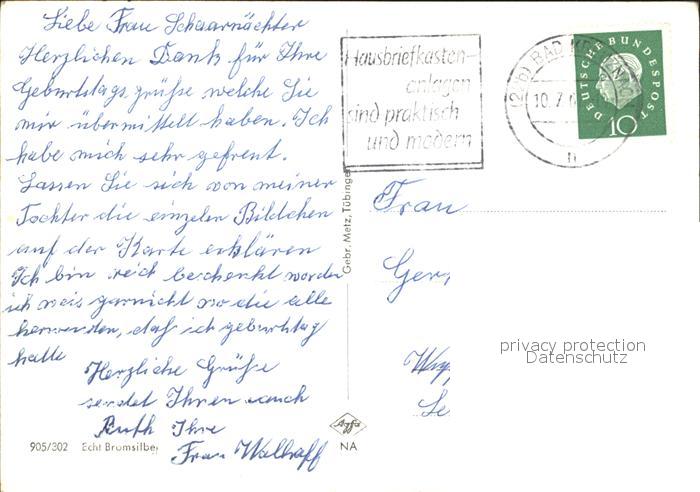 Liebe Frau Schaarnächter
Herzlichen Dank für Ihre
Geburtstagsgrüße welche Sie
mir übermittelt haben. Ich
habe mich sehr gefreut.
Lassen Sie sich von meiner
Tochter die einzelen Bildchen
auf der Karte erklären
Ich bin reich beschenkt worden
ich weis garnicht wo die alle
herwanden, daß ich geburtstag
hatte
Herzliche Grüße
sendet Ihnen auch
Ruth Ihre
Frau Wallraff
905/302 Echt Bromsilber
Gebr. Metz, Tübingen
Agfa
NA
Hausbriefkasten-
anlagen
sind praktisch
und modern
(22b) BAD
10.7.
n
DEUTSCHE BUNDESPOST
10
Frau
Ger
privacy protection
Datenschutz